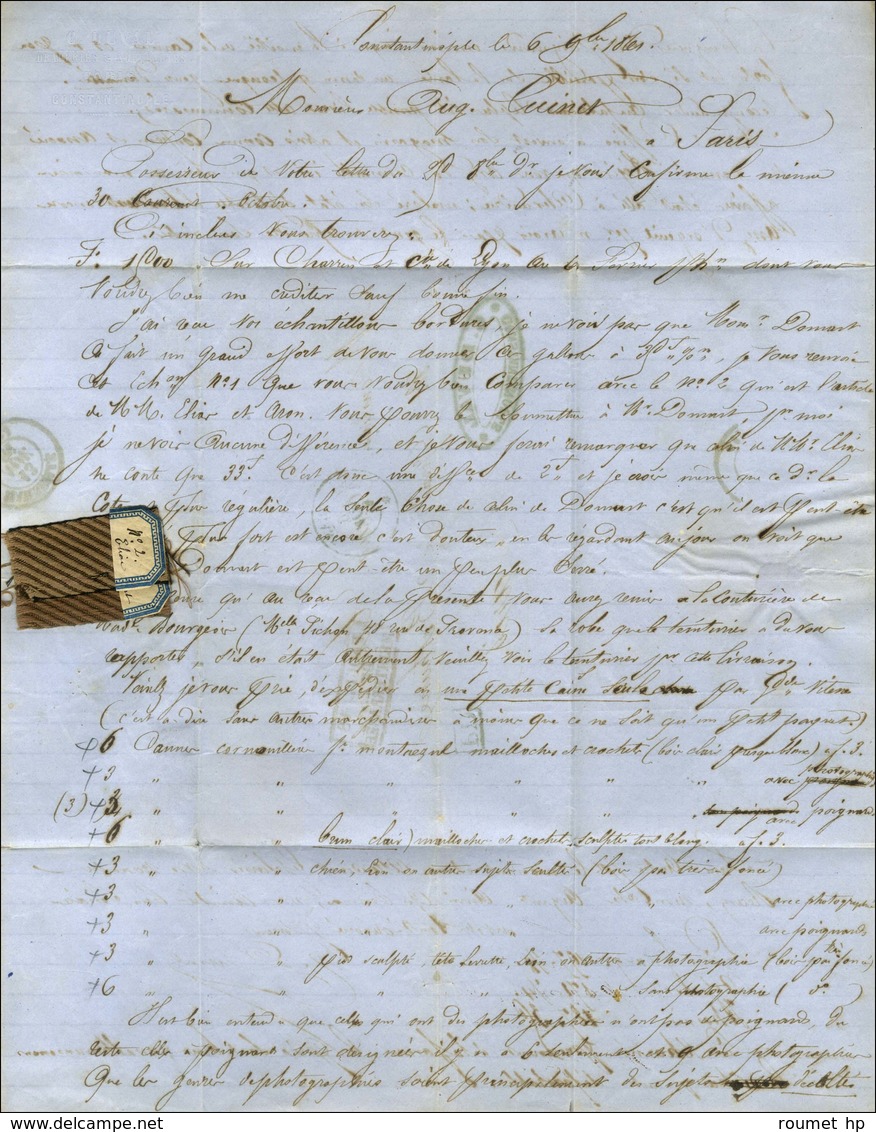 Constantinople le 6 9bre 1861.
Monsieur Aug. Cuinet
à Paris
Possesseur de votre lettre du 8bre dr. je vous confirme la mienne
30 Courant Octobre.
Ci inclus vous trouverez:
Fs. 1500 Sur Charrin et Cie de Lyon au 6 dont vous
voudrez bien me créditer sauf bonne fin.
J'ai vu vos échantillons bordures, je ne vois pas que Monr. Domart
a fait un grand effort de vous donner ce gallon à je vous renvoie
cet Echon No. 1 que vous voudrez bien comparer avec le No. 2 qui est l'article
de M.M. Elias et Aron. Vous pourrez le soumettre à Mr. Domart, pr. moi
je ne vois aucune différence, et je vous ferai remarquer que celui de Mr. Elias
ne coute que 33f. c'est donc une diffce de 2f et je crois même que ce dr. la
plus régulière, la seule chose de celui de Domart c'est qu'il est peut être
plus fort et encore c'est douteux, en les regardant au jour on voit que
Domart est peut-être un peu plus serré.
qu'au reçu de la présente vous aurez remis à la couturière de
Made. Bourgeois (Melle Pichon 48 rue de Provence) sa robe que le teinturier a du vous
rapporter, s'il en était autrement, veuillez voir le teinturier pr. cette livraison.
Veuillez je vous prie, d'expédier en une petite caisse seule par Gde Vitesse
(c'est à dire sans autres marchandises à moins que ce ne soit qu'un petit paquet)
6 Cannes cornouiller pr. montagne mailloches et crochets (bois clair presque blanc) a f. 3.
+ 3 " " " " " avec photographie
(3) + 3 " " " " avec poignard
+ 6 " " (brun clair) mailloches et crochets sculptés tout blanc. a f. 3.
+ 3 " " chien, lion ou autre sujet sculté (bois pas très foncé)
+ 3 " " " " " avec photographie
+ 3 " " " " avec poignards
+ 3 " " pied sculpté, tête levrette, lion ou autre a photographie (bois pas très foncé)
+ 6 " " " " " sans photographie ( do. )
Il est bien entendu que celles qui ont des photographies n'ont pas de poignard, du
reste celles a poignards sont désignées il y en a 6 seulement et 9 avec photographies
Que les genres de photographies soient principalement des sujets décolté
No. 2.
Elias
roumet hp